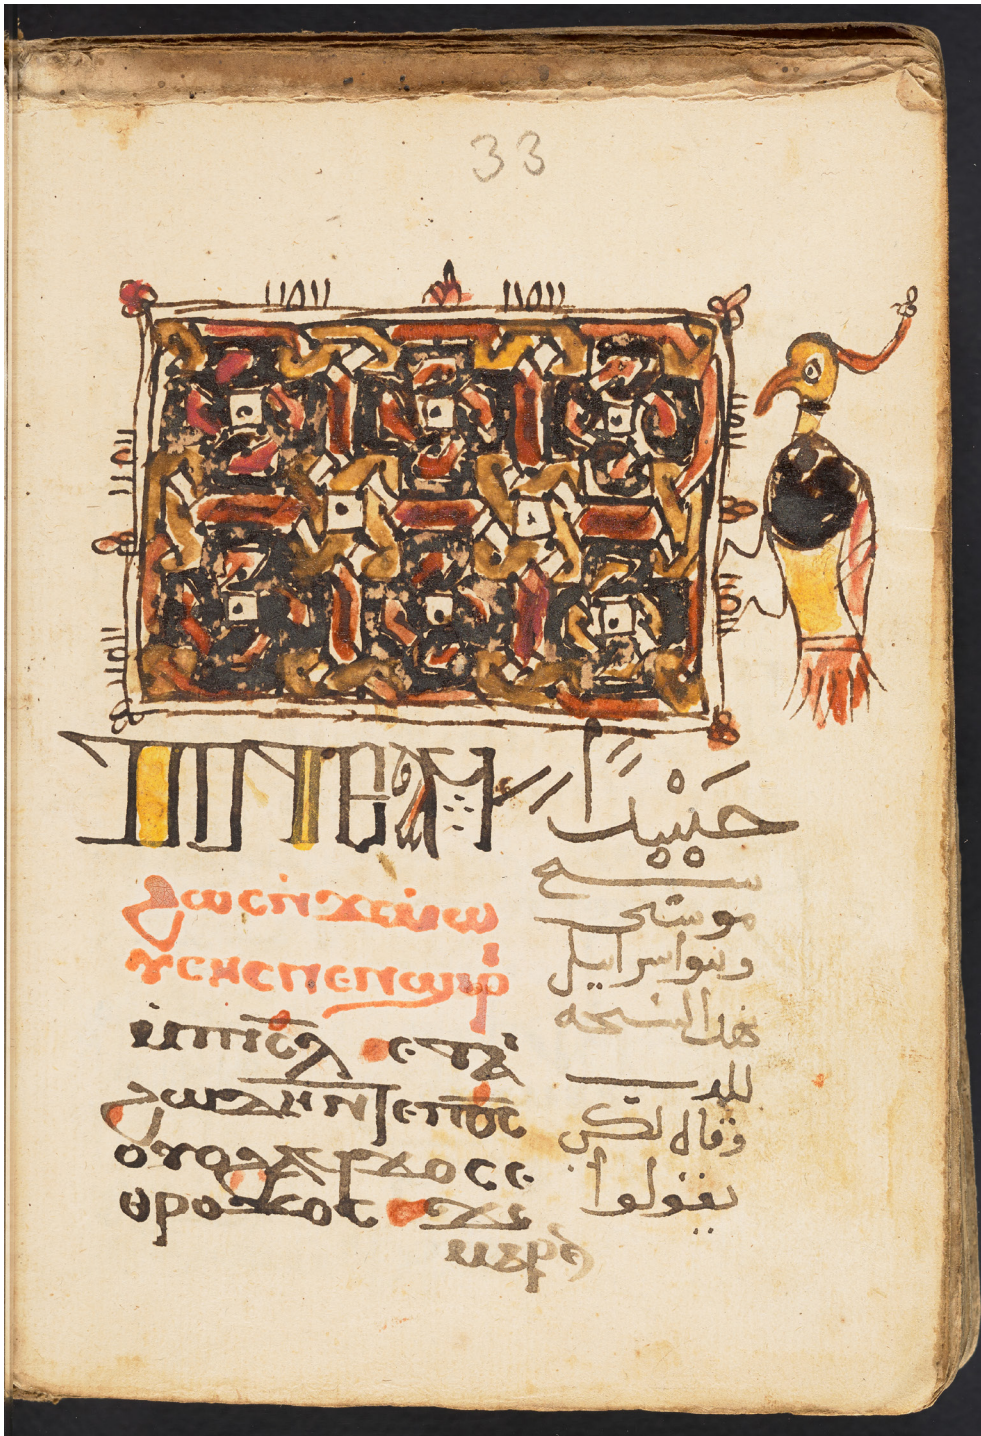 33
ⲧⲟⲧⲉ ⲁϥ
ϩⲱⲥ ⲛ̀ϫⲉ ⲙ̀ⲱ
ⲩⲥⲏⲥ ⲛⲉⲙ ⲛⲉⲛϣⲏⲣⲓ
ⲙ̀ⲡⲓⲥ̅ⲗ̅ ⲉⲧⲁⲓ
ϩⲱⲇⲏ ⲛ̀ⲧⲉ ⲡⲟ̅ⲥ̅
ⲟⲩⲟϩ ⲁϥϫⲟⲥ ⲉ
ⲑⲣⲟⲩϫⲟⲥ ϫⲉ
حينيدا
سبح
موسى
وبنوا اسراييل
هدا التسبحه
للرب
وقال لكى
يقولوا